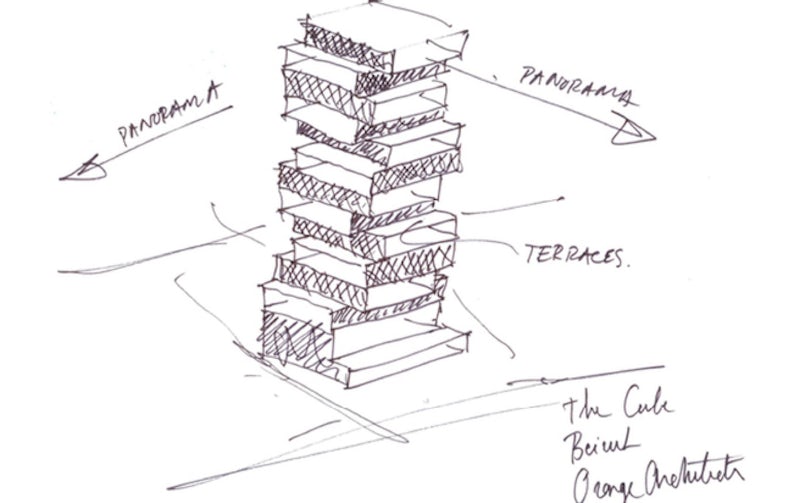 PANORAMA
PANORAMA
TERRACES.
the Cube
Beirut
Orange Architects